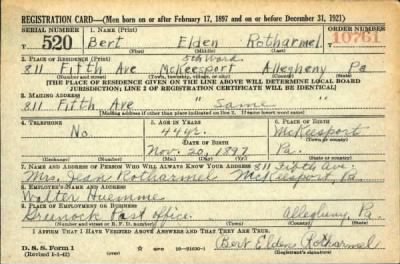 REGISTRATION CARD—(Men born on or after February 17, 1897 and on or before December 31, 1921)
SERIAL NUMBER 1. NAME (Print) ORDER NUMBER
T 520 Bert Elden Rotharmel 10761
(First) (Middle) (Last)
2. PLACE OF RESIDENCE (Print) 5th Ward
811 Fifth Ave McKeesport Allegheny Pa
(Number and street) (Town, township, village, or city) (County) (State)
[THE PLACE OF RESIDENCE GIVEN ON THE LINE ABOVE WILL DETERMINE LOCAL BOARD
JURISDICTION; LINE 2 OF REGISTRATION CERTIFICATE WILL BE IDENTICAL]
3. MAILING ADDRESS
811 Fifth Ave " Same "
[Mailing address if other than place indicated on line 2. If same insert word same]
4. TELEPHONE 5. AGE IN YEARS 6. PLACE OF BIRTH
No. 44 McKeesport
DATE OF BIRTH (Town or county)
Nov. 20, 1897 Pa.
(Exchange) (Number) (Mo.) (Day) (Yr.) (State or country)
7. NAME AND ADDRESS OF PERSON WHO WILL ALWAYS KNOW YOUR ADDRESS 811 Fifth Ave.
Mrs. Jean Rotharmel McKeesport, Pa.
8. EMPLOYER'S NAME AND ADDRESS
Walter Huemme
9. PLACE OF EMPLOYMENT OR BUSINESS
Greenock Post Office. Allegheny, Pa.
(Number and street or R. F. D. number) (Town) (County) (State)
I AFFIRM THAT I HAVE VERIFIED ABOVE ANSWERS AND THAT THEY ARE TRUE.
D. S. S. Form 1 Bert Elden Rotharmel
(Revised 1-1-42) (over) GPO 16-21630-1 (Registrant's signature)